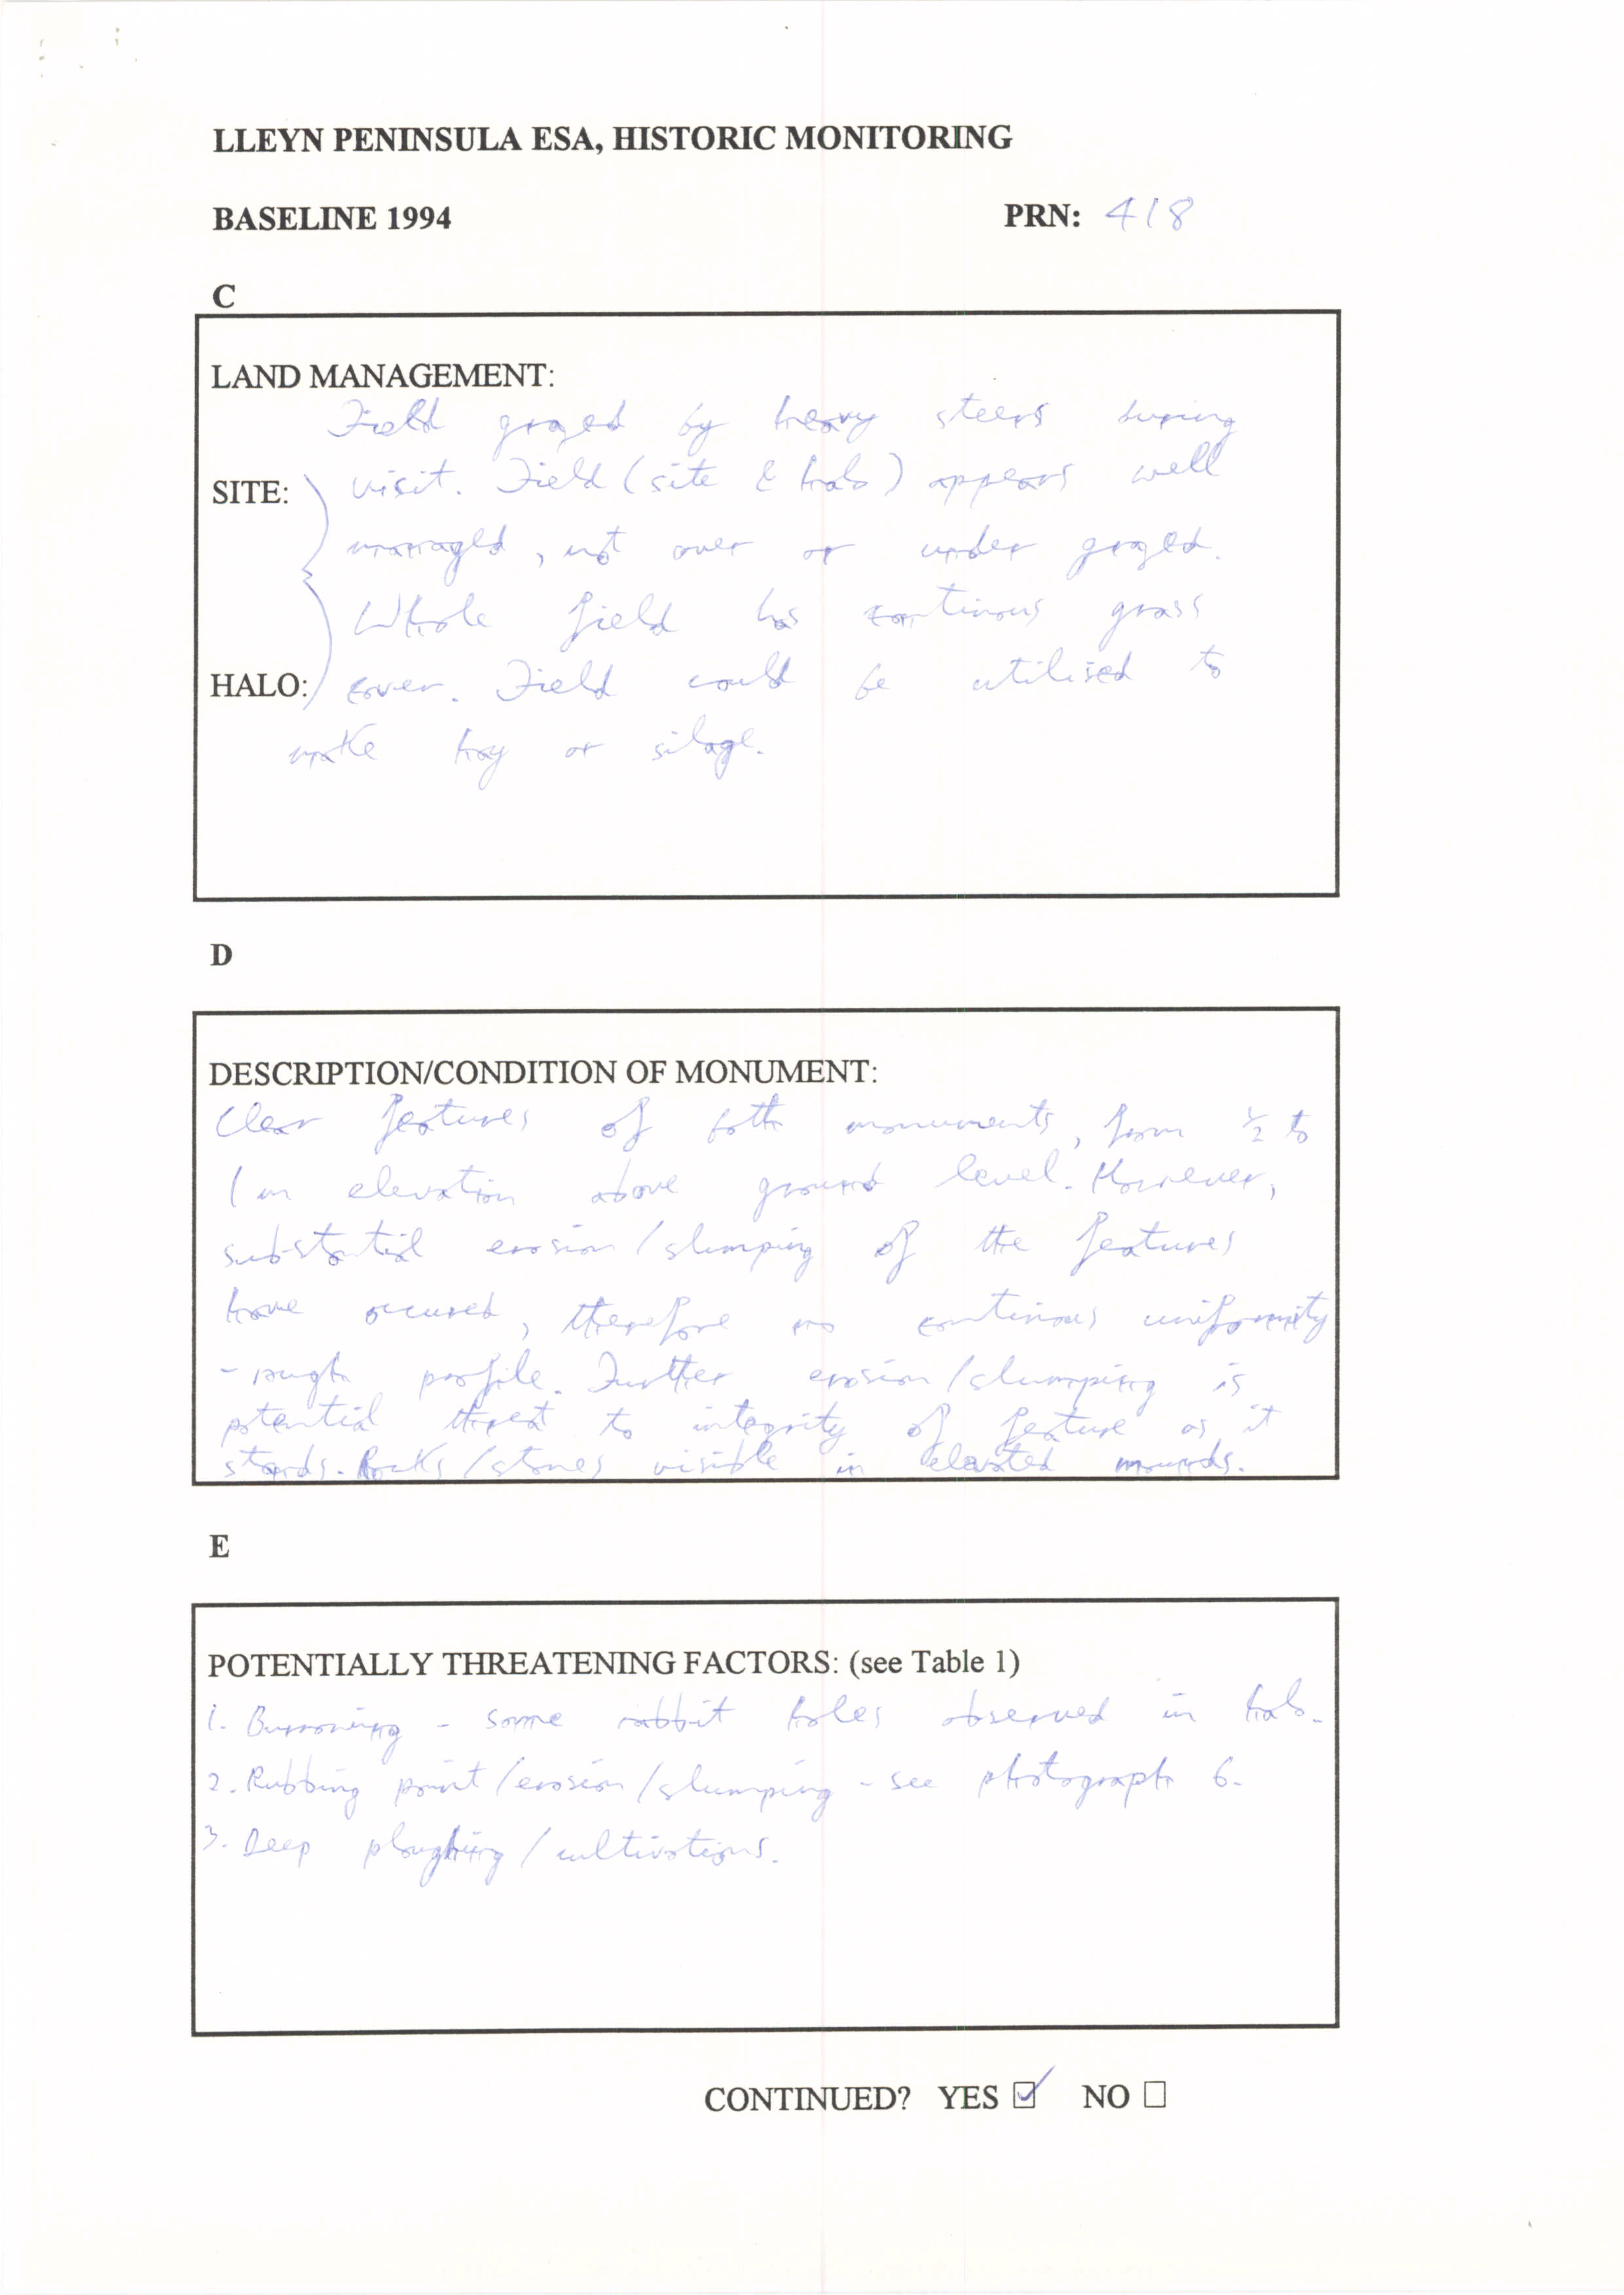 LLEYN PENINSULA ESA, HISTORIC MONITORING
BASELINE 1994 PRN: 418
C
LAND MANAGEMENT:
Field grazed by heavy steers during
SITE: visit. Field (site & halo) appears well
managed, not over or under grazed.
Whole field has continous grass
HALO: cover. Field could be utilised to
make hay or silage.
D
DESCRIPTION/CONDITION OF MONUMENT:
Clear features of both monuments, from ½ to
1m elevation above ground level. However,
substantial erosion/slumping of the features
have occured, therefore no continous uniformity
- rough profile. Further erosion/slumping is
potential threat to integrity of feature as it
stands. Rocks/stones visible in elevated mounds.
E
POTENTIALLY THREATENING FACTORS: (see Table 1)
1. Burrowing - some rabbit holes observed in halo.
2. Rubbing point/erosion/slumping - see photograph 6.
3. Deep ploughing/cultivations.
CONTINUED? YES ☑ NO ☐